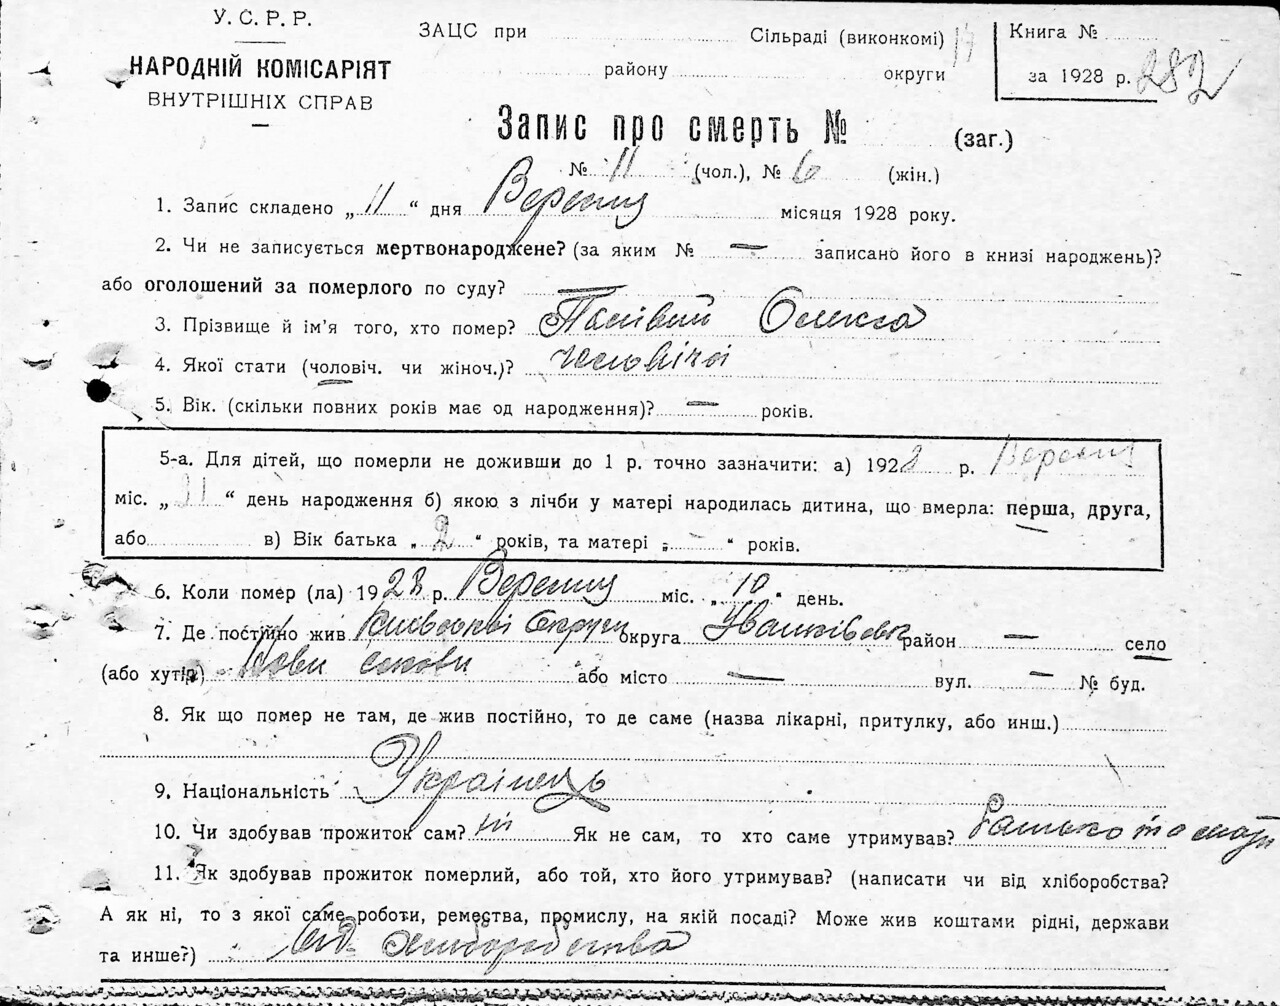 У. С. Р. Р.
НАРОДНІЙ КОМІСАРІЯТ
ВНУТРІШНІХ СПРАВ
ЗАЦС при Сільраді (виконкомі) 17
району округи
Книга №
за 1928 р. 282
Запис про смерть № (заг.)
№ 11 (чол.), № 6 (жін.)
1. Запис складено „ 11 “ дня Вересня місяця 1928 року.
2. Чи не записується мертвонароджене? (за яким № — записано його в книзі народжень)?
або оголошений за померлого по суду? —
3. Прізвище й ім'я того, хто помер? Олекса
4. Якої стати (чоловіч. чи жіноч.)? чоловічої
5. Вік. (скільки повних років має од народження)? — років.
5-а. Для дітей, що померли не доживши до 1 р. точно зазначити: а) 1928 р. Вересня
міс. „ “ день народження б) якою з лічби у матері народилась дитина, що вмерла: перша, друга,
або в) Вік батька „ 2 “ років, та матері „ — “ років.
6. Коли помер (ла) 1928 р. Вересня міс. „ 10 “ день.
7. Де постійно жив Київської Округи округа Іванківськ район — село
(або хутір) або місто — вул. — № буд.
8. Як що помер не там, де жив постійно, то де саме (назва лікарні, притулку, або инш.)
9. Національність Українець
10. Чи здобував прожиток сам? ні Як не сам, то хто саме утримував? Батько та мати
11. Як здобував прожиток померлий, або той, хто його утримував? (написати чи від хліборобства?
А як ні, то з якої саме роботи, ремества, промислу, на якій посаді? Може жив коштами рідні, держави
та инше?) Від хліборобства